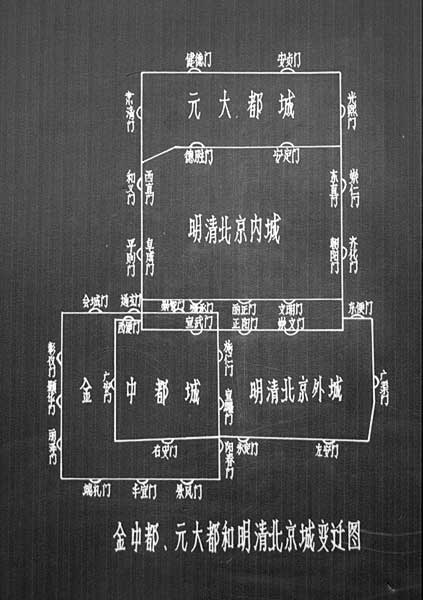 健德门
安贞门
元大都城
肃清门
光熙门
德胜门
安定门
和义门
西直门
东直门
崇仁门
明清北京内城
平则门
阜成门
朝阳门
齐化门
会城门
通玄门
崇智门
顺承门
丽正门
文明门
东便门
西便门
宣武门
正阳门
崇文门
彰义门
施仁门
颢华门
广安门
金中都城
宣曜门
明清北京外城
广渠门
丽泽门
阳春门
右安门
永定门
左安门
端礼门
丰宜门
景风门
金中都、元大都和明清北京城变迁图